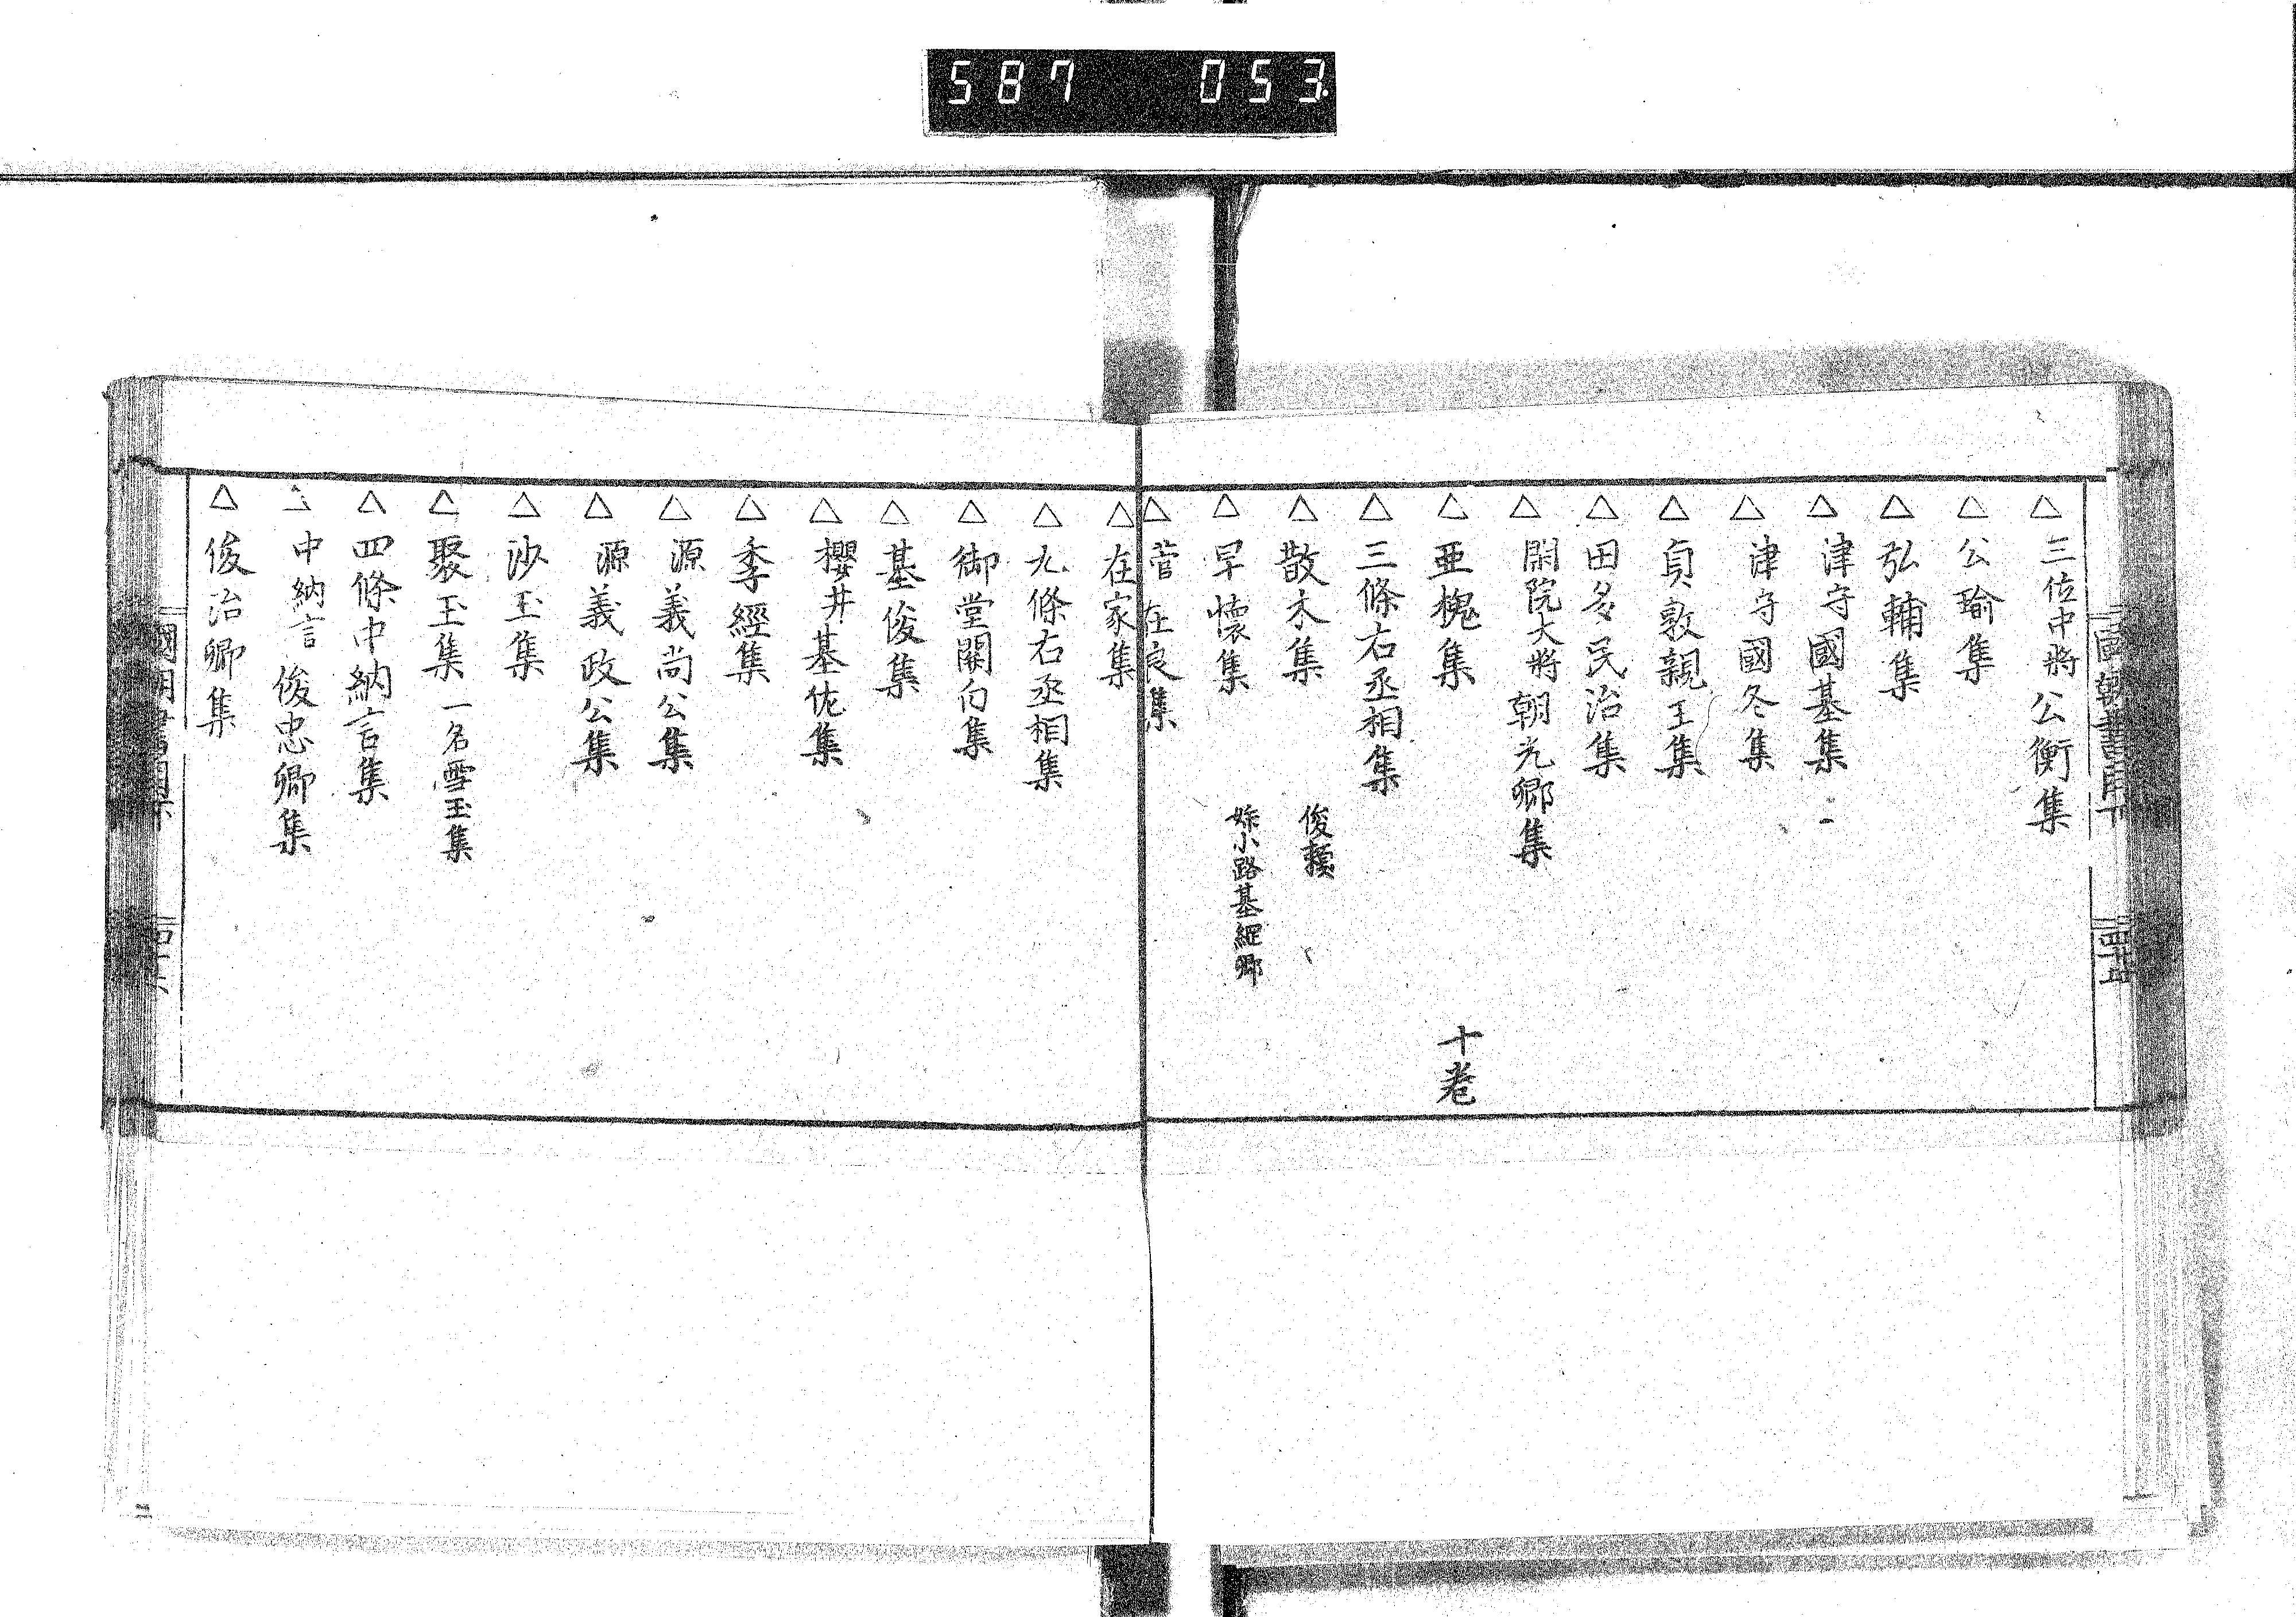 587 053
△三位中將公衡集
△公瑜集
△弘輔集
△津守國基集
△津守國冬集
△貞敦親王集
△田多民治集
△閑院大將朝光卿集
△亜槐集 十卷
△三條右丞相集
△散木集 俊頼
△早懷集 姉小路基綱卿
△菅在良集
△在家集
△九條右丞相集
△御堂關白集
△基俊集
△櫻井基佐集
△季經集
△源義尚公集
△源義政公集
△沙玉集
△聚玉集 一名雪玉集
△四條中納言集
△中納言俊忠卿集
△俊治卿集